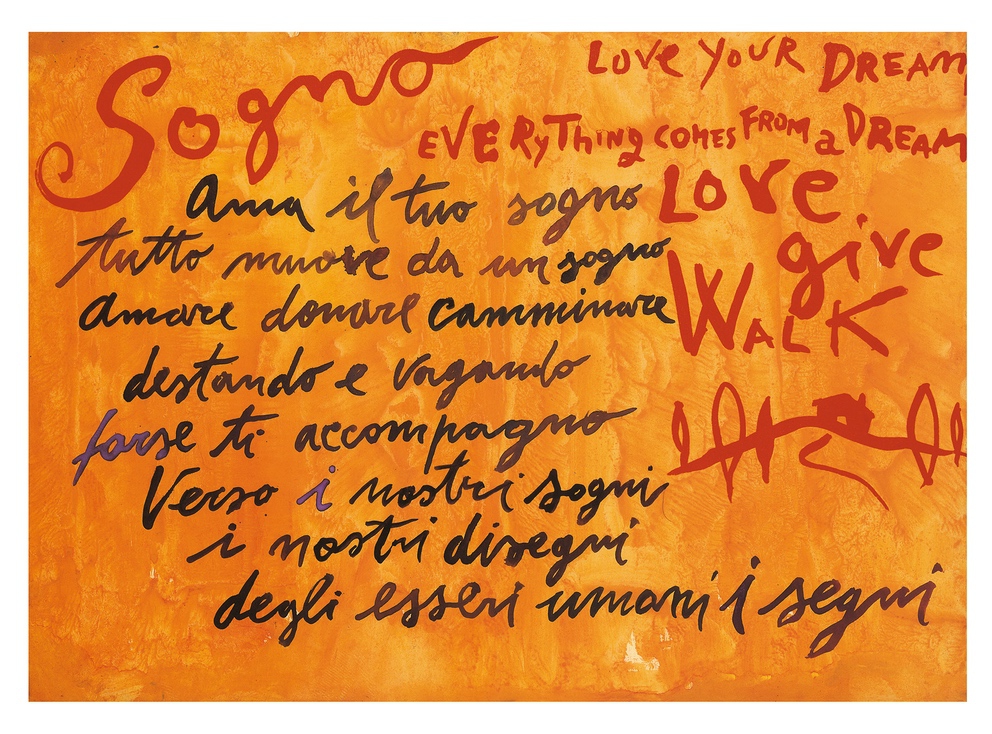 Sogno
LOVE YOUR DREAM
EVERYTHING COMES FROM a DREAM
Ama il tuo sogno
tutto muove da un sogno
Amare donare camminare
destando e vagando
forse ti accompagno
Verso i nostri sogni
i nostri disegni
degli esseri umani i segni
Love.
give
WALK